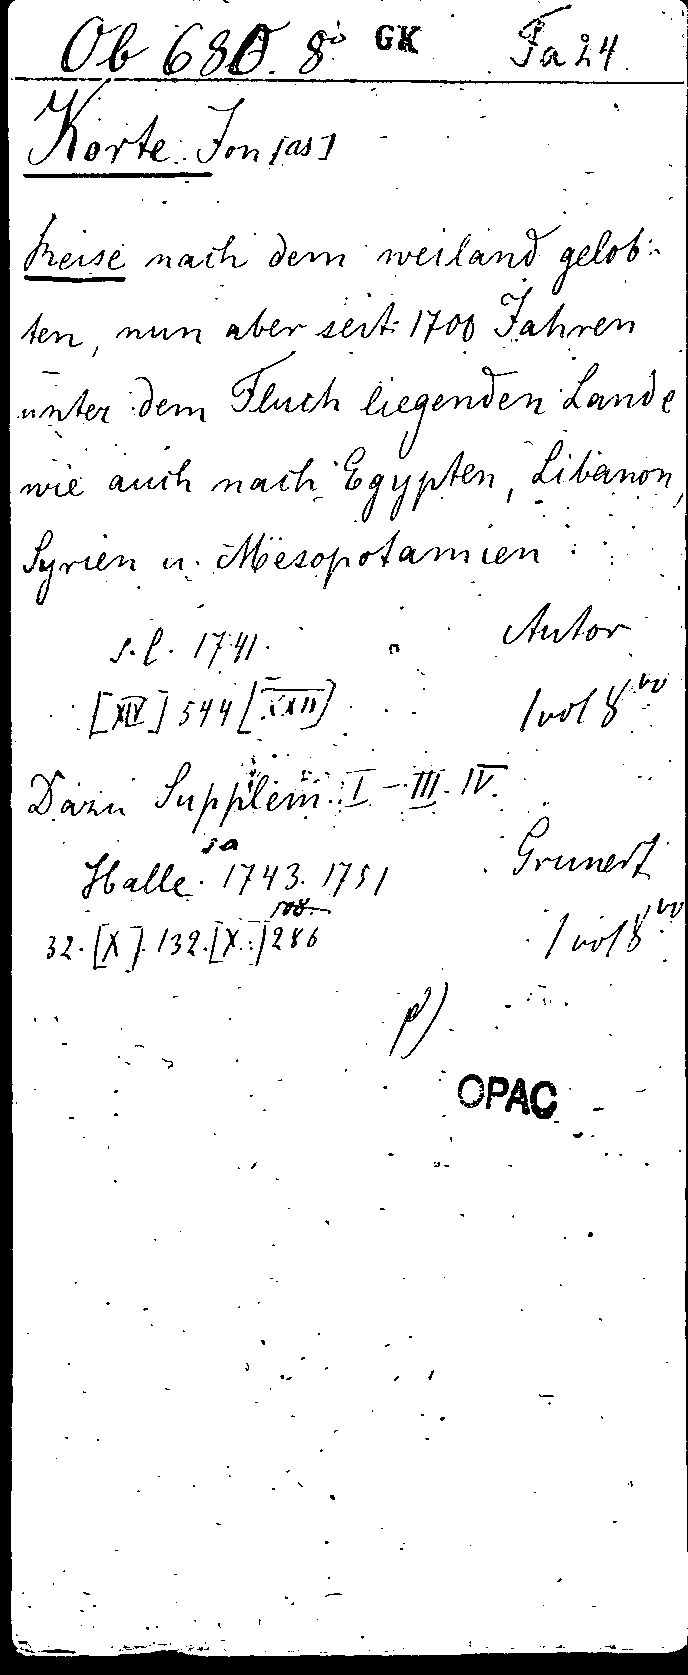 Ob 680. 8° GK Fa 24
Korte Jon[as]
Reise nach dem weiland gelob-
ten, nun aber seit 1700 Jahren
unter dem Fluch liegenden Lande
wie auch nach Egypten, Libanon,
Syrien u. Mesopotamien
s. l. 1741. Autor
[XIV] 544 [XXII] 1 vol 8vo
Dazu Supplem. I-III. IV.
s a
Halle. 1743. 1751 Grunert
32. [X]. 132. [X.] 286 1 vol 8vo
OPAC